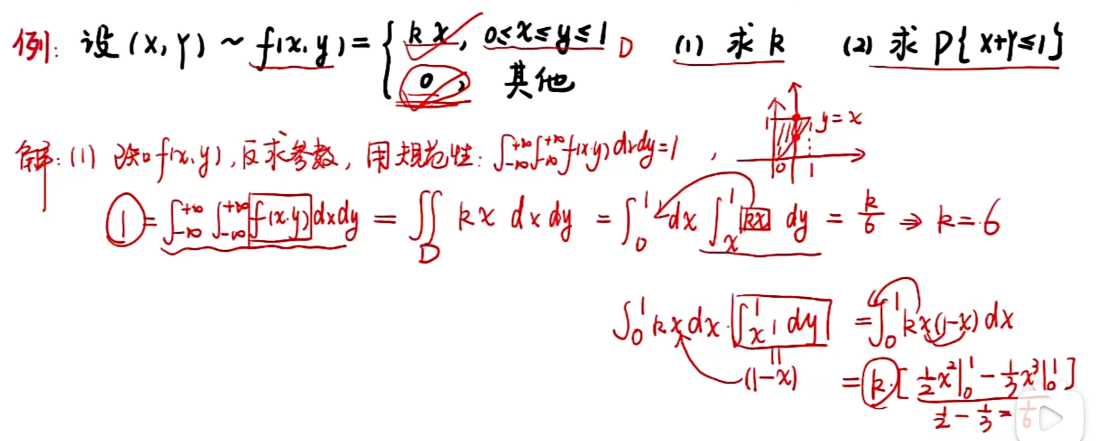 例: 设 (X,Y) ~ f(x,y) = { kx, 0≤x≤y≤1 D (1) 求 k (2) 求 P{X+Y≤1}
0, 其他
解: (1) 已知 f(x,y), 反求参数, 用规范性: ∫_{-∞}^{+∞}∫_{-∞}^{+∞} f(x,y) dxdy = 1 ,
1 y=x
0 1
① = ∫_{-∞}^{+∞} ∫_{-∞}^{+∞} f(x,y) dxdy = ∬_D kx dxdy = ∫_0^1 dx ∫_x^1 kx dy = k/6 ⇒ k=6
∫_0^1 kx dx · ∫_x^1 1 dy = ∫_0^1 kx(1-x) dx
(1-x) = k·[ 1/2 x²|_0^1 - 1/3 x³|_0^1 ]
1/2 - 1/3 = 1/6